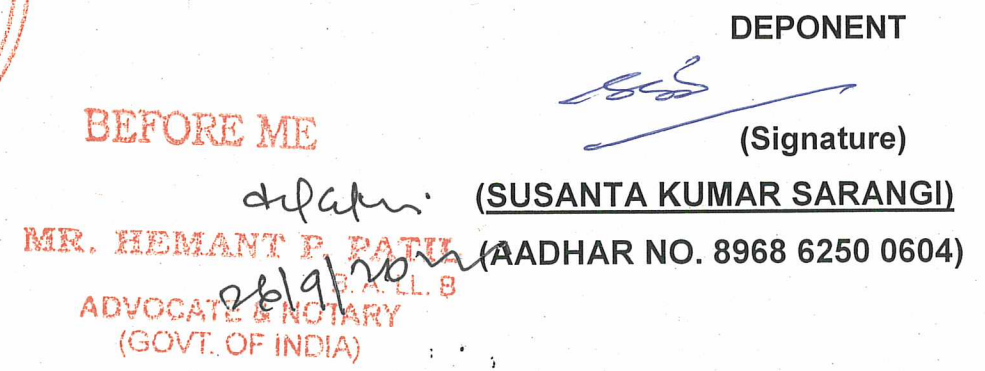 DEPONENT
(Signature)
(SUSANTA KUMAR SARANGI)
(AADHAR NO. 8968 6250 0604)
BEFORE ME
MR. HEMANT P. PATIL
B. A. LL. B
ADVOCATE & NOTARY
(GOVT. OF INDIA)